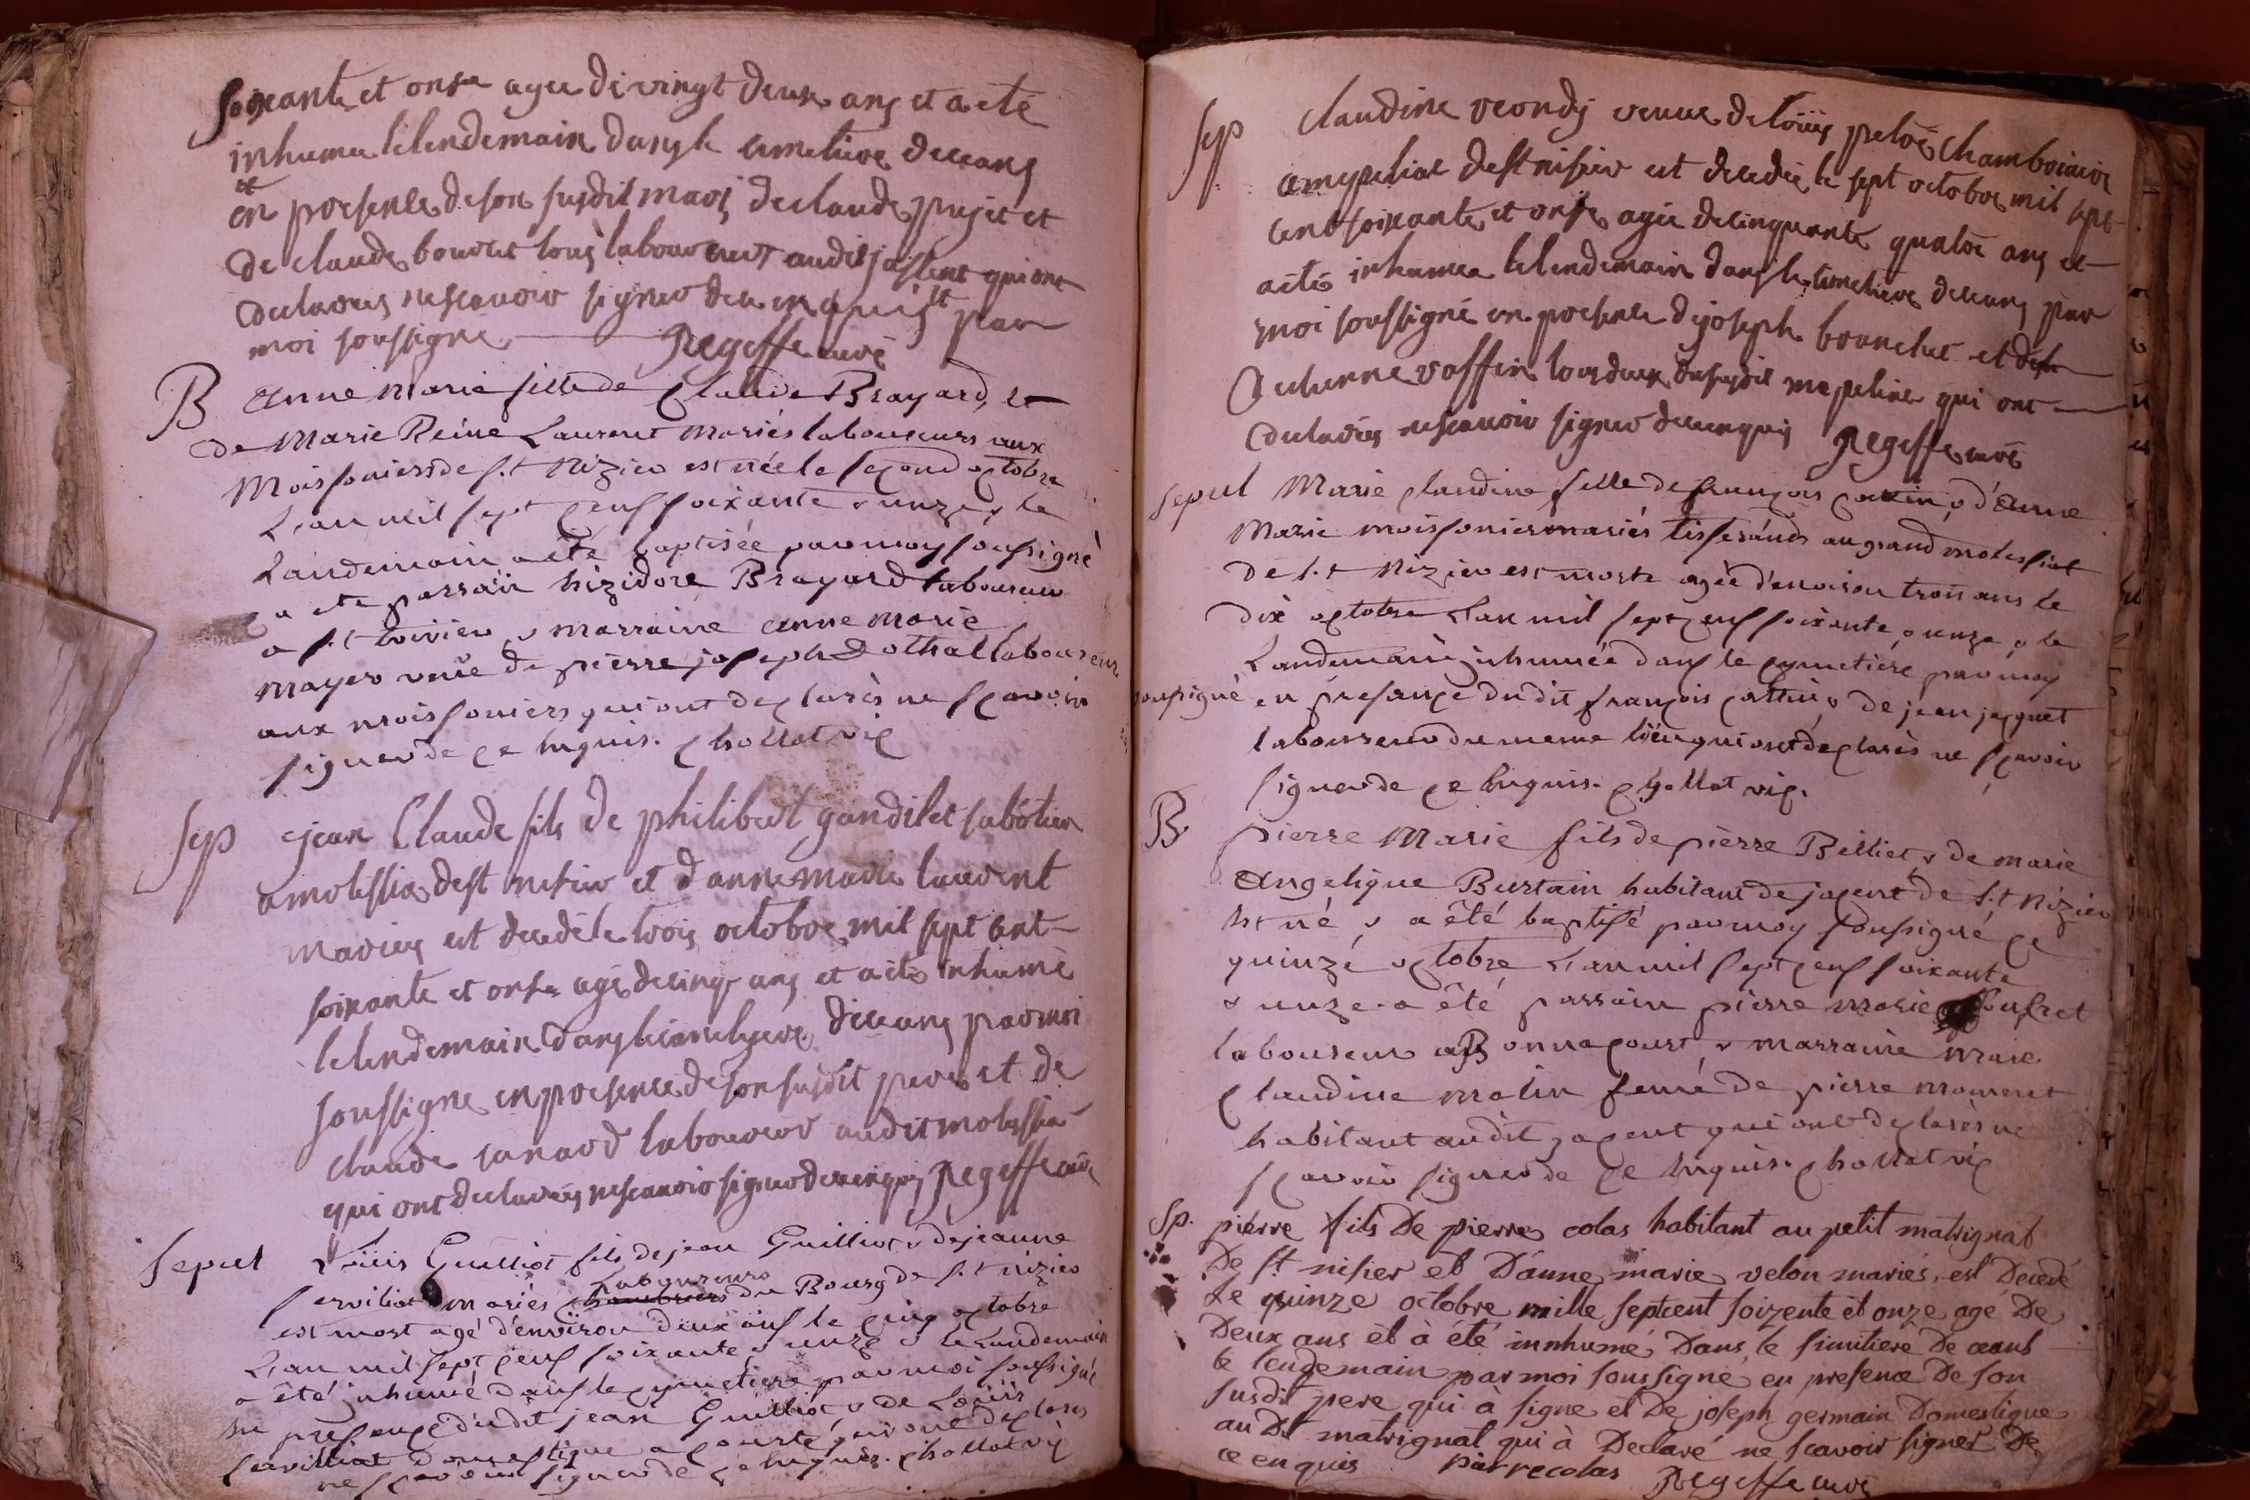 soixante et onse agée de vingt deux ans et a eté
inhumée le lendemain dans le cimetiere deceans
et en presence de son susdit mary de claude pujet et
de claude bouvet tous laboureurs audit jassent qui ont
declarés ne scavoir signer de ce enquis par
moi soussigné Regeffe curé
B Anne Marie fille de Claude Brayard, et
de Marie Reine Laurent mariés laboureurs aux
Moissoniers de S.t Nizier est née le second octobre
L'an mil sept cens soixante & unze, & le
Landemain a été baptisée par moy soussigné
a ete parrain hizidore Brayard laboureur
a S.t trivier & marraine anne marie
mayer veuve de pierre joseph Dothal laboureur
aux moissoniers qui ont declarés ne scavoir
signer de ce enquis. Chollat vic
Sep jean Claude fils de philibert gandilet sabotier
a molissia de st nisier et d'anne marie laurent
mariés est decedé le trois octobre mil sept cent
soixante et onse agé de cinq ans et a eté inhumé
le lendemain dans le cimetyere deceans par moi
soussigné en presence de son susdit pere et de
claude canard laboureur audit molissia
qui ont declarés ne scavoir signer de ce enquis Regeffe curé
Sepul Loüis Guilliot fils de jean Guilliot & de jeanne
Serviliat mariés laboureurs du Bourg de S.t nizier
est mort agé d'environ deux ans le cinq octobre
L'an mil sept cens soixante & unze & le Landemain
a été inhumé dans le cymetiere par moi soussigné
en presence dudit jean Guilliot & de Loüis
Servilliat domestique a qui ont declarés
ne scavoir signer de ce enquis. Chollat vic
Sep Claudine reondy veuve de loüis peloc
a de st nisier est decedée le sept octobre mil sept
cent soixante et onse agée de cinquante quatre ans et
a eté inhumée le lendemain dans le cimetiere deceans par
moi soussigné en presence de joseph branchet et de
etienne voffin tous deux du susdit qui ont
declarés ne scavoir signer de ce enquis Regeffe curé
Sepul Marie Claudine fille de françois cattin, & d'Anne
Marie moissonier mariés tisserands au grand molissiat
de S.t Nizier est morte agée d'environ trois ans le
dix octobre L'an mil sept cens soixante & unze & le
Landemain inhumée dans le cymetiere par moy
soussigné en presence du dit françois cattin & de jean jacquet
laboureur du meme lieu qui ont declarés ne scavoir
signer de ce enquis. Chollat vic.
B. pierre Marie fils de pierre Billiet & de marie
Angelique Burtain habitant de jacent de S.t Nizier
est né & a été baptisé par moy soussigné ce
quinze octobre L'an mil sept cens soixante
& unze. a été parrain pierre marie
laboureur a Bonnecourt & marraine marie
Claudine matin femme de pierre
habitant audit jacent qui ont declarés ne
scavoir signer de ce enquis. Chollat vic
Sp. pierre fils De pierre colas habitant au petit matrignat
De st nisier et D'anne marie velon mariés, est Decedé
Le quinze octobre mille septcent soizente et onze agé De
Deux ans et à été innhumé Dans le simitiere De ceans
le lendemain par moi soussigné en presence De son
susdit pere qui à signe et De joseph germain Domestique
au Dit matrignat qui à Declaré ne scavoir signer De
ce enquis pierre colas Regeffe curé